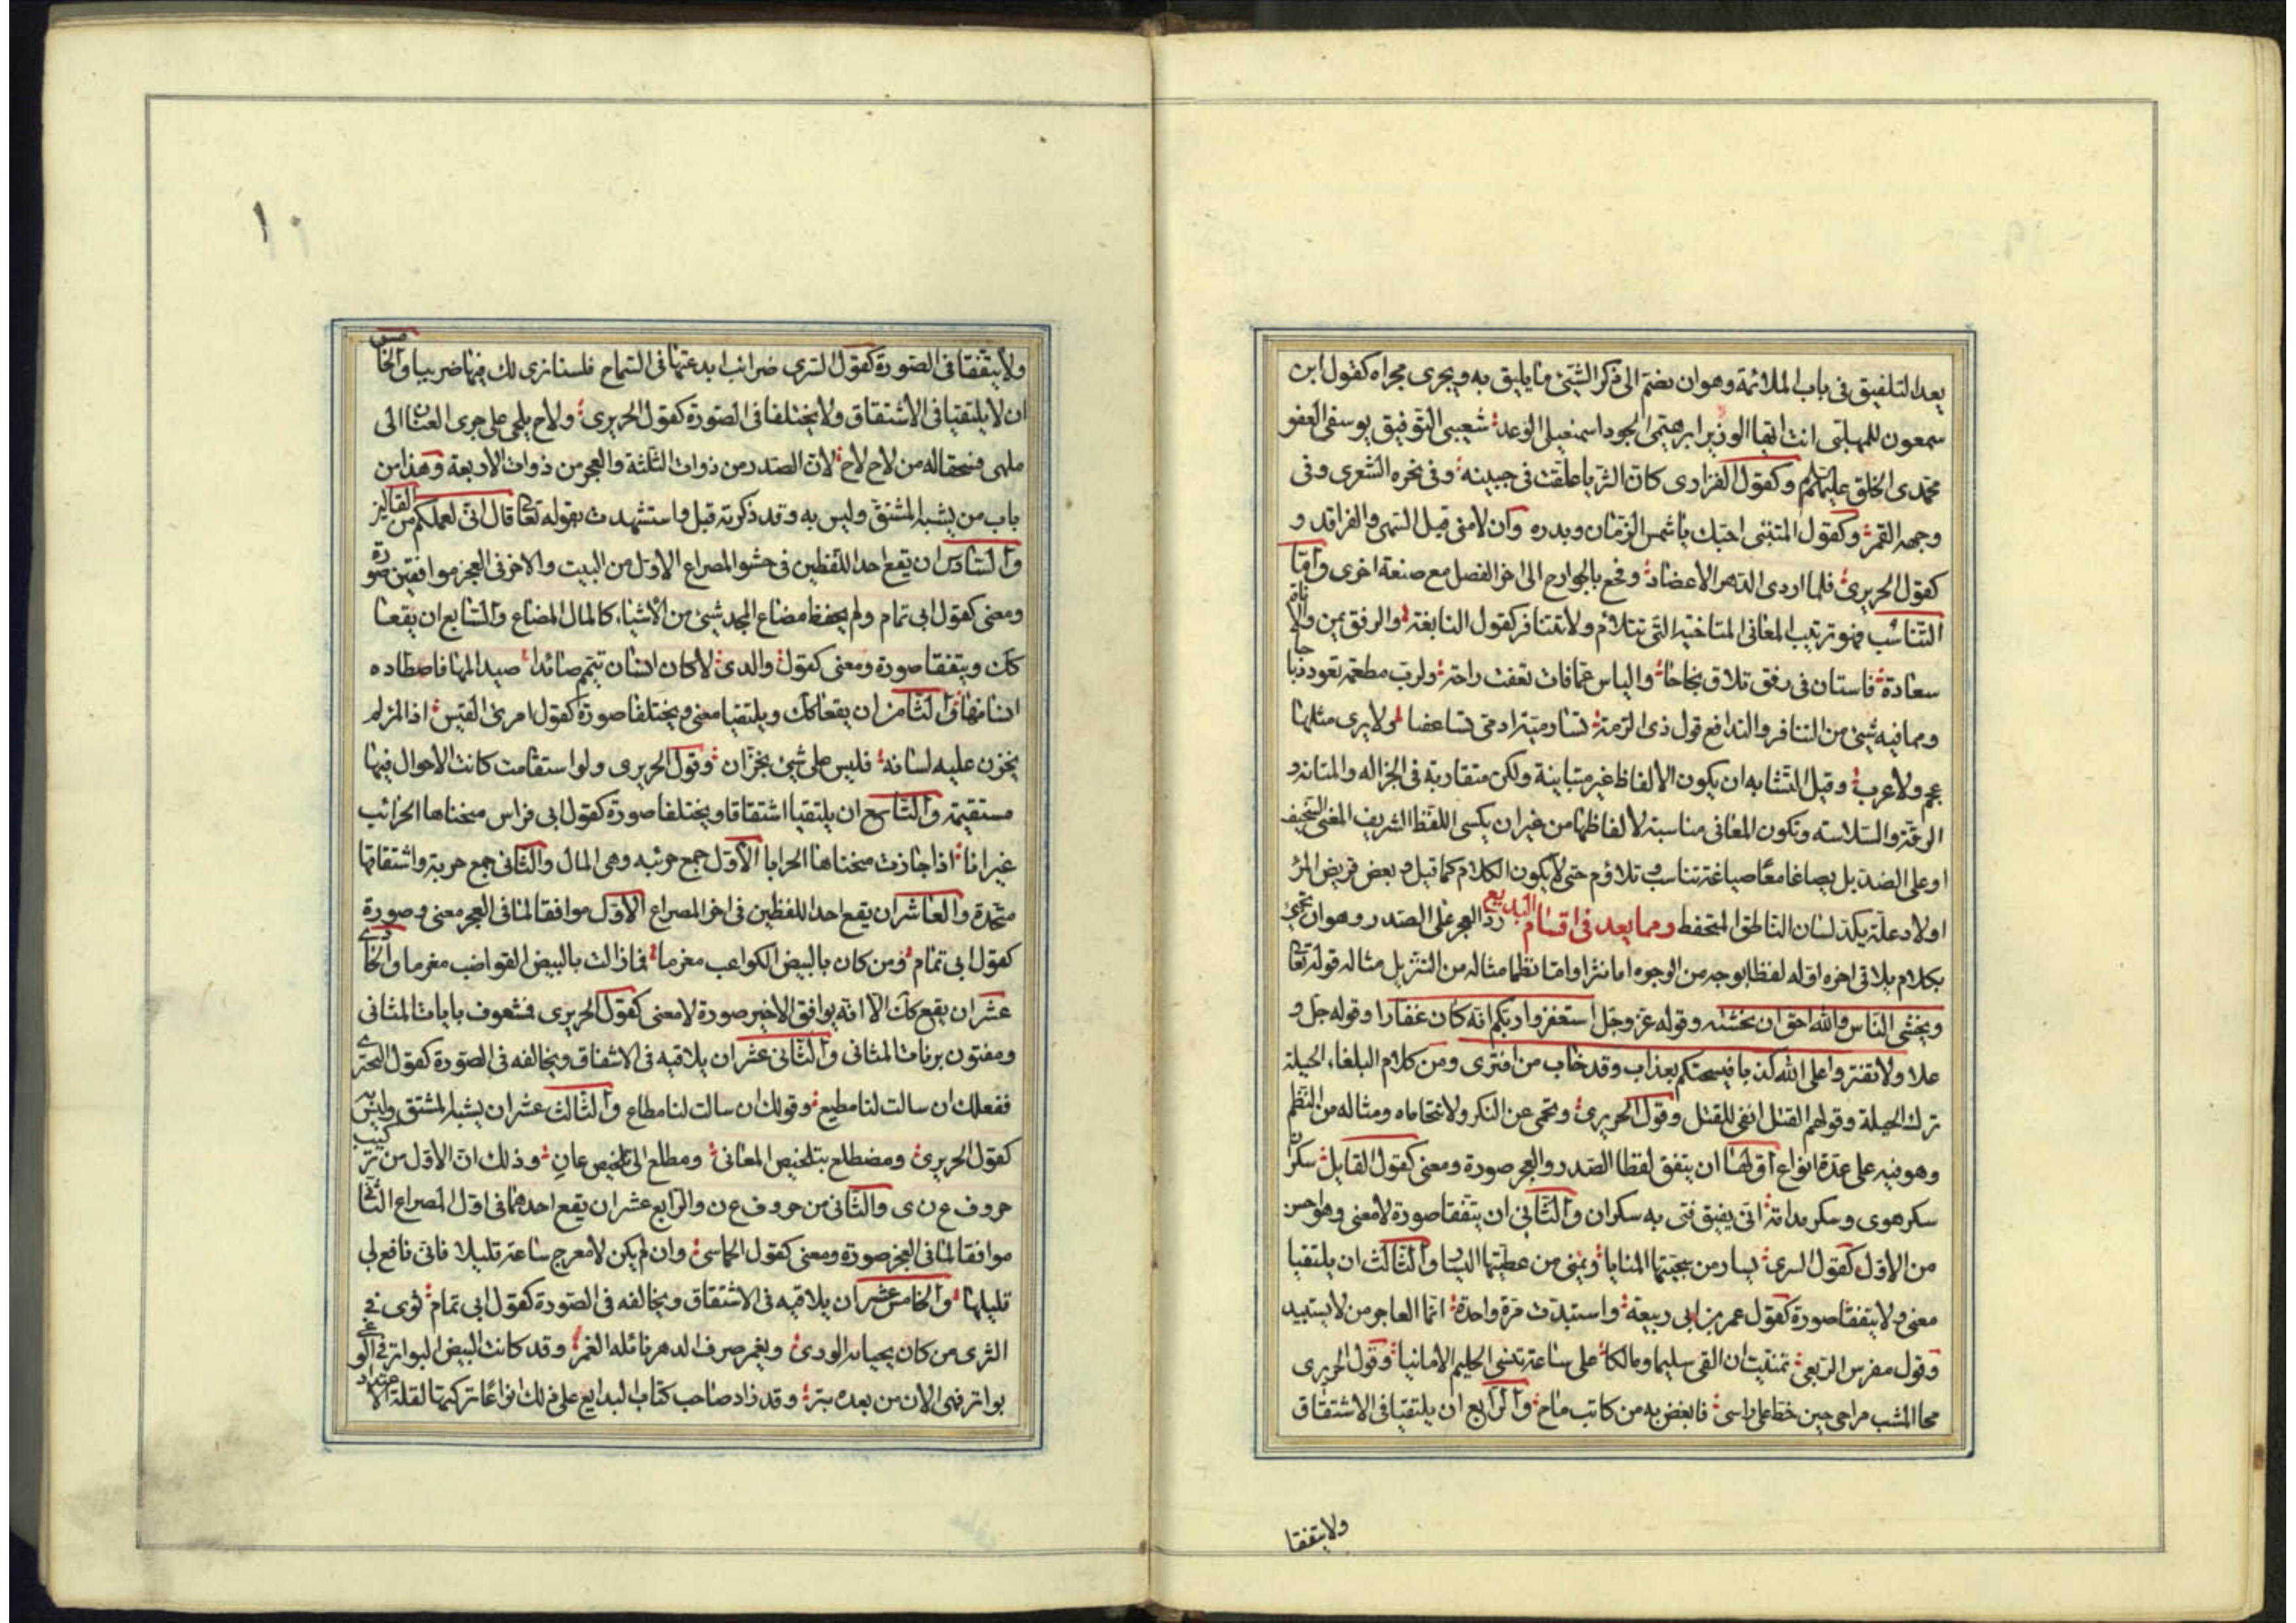 يعد التلفيق فى باب الملائمة وهو ان يضم الى ذكر الشئ ما يليق به ويجرى مجراه كقول ابن
سمعون للمهلبى انت ايها الوزير ابرهيمى الجود اسمعيلى الوعد شعيبى التوفيق يوسفى العفو
محمدى الخلق وكقول الفزارى كان الثريا علقت فى جبينه وفى نحره الشعرى وفى
وجهه القمر وكقول المتنبى احبك يا شمس الزمان وبدره وان لامنى فيك السهى والفراقد و
كقول الحريرى فلما اردى الدهر الاعضاد وفجع بالجوارح الى اخر الفصل مع صنعة اخرى واما
التناسب فهو ترتيب المعانى المتاخية التى تتلائم ولا تتنافر كقول النابغة والرفق يمن والاناة
سعادة فاستان فى رفق تلاق نجاحا والياس عما فات تعقب راحة ولرب مطعمة تعود ذباحا
ومما فيه شئ من التنافر والتدافع قول ذى الرمة ولا يرى مثلها
عجم ولا عرب وقيل التشابه ان يكون الالفاظ غير متباينة ولكن متقاربة فى الجزاله والمتانة و
الرقة والسلاسه وتكون المعانى مناسبة لالفاظها من غير ان يكسى اللفظ الشريف المعنى السخيف
او على الضد بل يصاغا معا صياغة تناسب وتلاؤم حتى لا يكون الكلام كما قيل وبعض قريض المرء
اولاد علة يكد لسان الناطق المتحفظ ومما يعد فى اقسام البديع رد العجز على الصدر وهو ان تجئ
بكلام يلاقى اخره اوله لفظا بوجه من الوجوه اما نثرا واما نظما مثاله من التنزيل مثاله قوله تعا
ويخشى الناس والله احق ان يخشنه وقوله عز وجل استغفروا ربكم انه كان غفارا وقوله جل و
علا ولا تفتروا على الله كذبا فيسحتكم بعذاب وقد خاب من افترى ومن كلام البلغاء الحيلة
ترك الحيلة وقولهم القتل انفى للقتل وقول الحريرى وتحمى عن النكر ولا تتحاماه ومثاله من النظم
وهو فيه على عدة انواع اولها ان يتفق لفظا الصدر والعجز صورة ومعنى كقول القايل سكران
سكر هوى وسكر مدامة انى يفيق فتى به سكران والثانى ان يتفقا صورة لا معنى وهو احسن
من الاول كقول السرى يسار من سجيتها المنايا ويمنى من عطيتها اليسار والثالث ان يلتقيا
معنى ولا يتفقا صورة كقول عمر بن ابى ربيعة واستبدت مرة واحدة انما العاجز من لا يستبد
وقول مفرس الربعى تمنيت ان القى سليما ومالكا على ساعة تنسى الحليم الامانيا وقول الحريرى
محا المشيب مراحى حين خط على راسى فابغض به من كاتب ماح والرابع ان يلتقيا فى الاشتقاق
ولا يتفقا
١٠
ولا يتفقا فى الصورة كقول السرى ضرائب ابدعتها فى السماح فلسنا نرى لك فيها ضريبا والخامس
ان لا يلتقيا فى الاشتقاق ولا يختلفا فى الصورة كقول الحريرى ولاح يلحى على جرى العنان الى
ملهى فسحقا له من لاح لاح لان الصدر من ذوات الثلثة والعجز من ذوات الاربعة وهذا من
باب من يشبه المشتق وليس به وقد ذكرته قبل واستشهدت بقوله تعا قال انى لعملكم من القالين
والسادس ان يقع احد اللفظين فى حشو المصراع الاول من البيت والاخر فى العجز موافقين صورة
ومعنى كقول ابى تمام ولم يحفظ مضاع المجد شئ من الاشياء كالمال المضاع والسابع ان يقعا
كك ويتفقا صورة ومعنى كقول والدى لا كان انسان تيمم صائدا صيد المها فاصطاده
انسانها والثامن ان يقعا كك ويلتقيا معنى ويختلفا صورة كقول امرئ القيس اذا المرء لم
يخزن عليه لسانه فليس على شئ بخزان وقول الحريرى ولو استقامت كانت الاحوال فيها
مستقيمة والتاسع ان يلتقيا اشتقاقا ويختلفا صورة كقول ابى فراس منحناها الحرائب
غير انا اذا جازت منحناها الحرابا الاول جمع حريبه وهى المال والثانى جمع حربة واشتقاقها
متحدة والعاشر ان يقع احد اللفظين فى اخر المصراع الاول موافقا لما فى العجز معنى وصورة
كقول ابى تمام ومن كان بالبيض الكواعب مغرما فما زالت بالبيض القواضب مغرما والحادى
عشر ان يقع كك الا انه يوافق الاخير صورة لا معنى كقول الحريرى فمشعوف بايات المثانى
ومفتون برنات المثانى والثانى عشر ان يلاقيه فى الاشتقاق ويخالفه فى الصورة كقول البحترى
ففعلك ان سالت لنا مطيع وقولك ان سالت لنا مطاع والثالث عشر ان يشبه المشتق وليس به
كقول الحريرى ومضطلع بتلخيص المعانى ومطلع الى تخليص عان وذلك ان الاول من تركيب
حروف ع ن ى والثانى من حروف ع ن و والرابع عشر ان يقع احدهما فى اول المصراع الثانى
موافقا لما فى العجز صورة ومعنى كقول الحماسى وان لم يكن الا معرج ساعة قليلا فانى نافع لى
قليلها والخامس عشر ان يلاقيه فى الاشتقاق ويخالفه فى الصورة كقول ابى تمام ثوى فى
الثرى من كان يحيا به الورى ويغمر صرف الدهر نائله الغمر وقد كانت البيض البواتر فى الوغى
بواتر فهى الان من بعده بتر وقد زاد صاحب كتاب البدايع على ذلك انواعا تركتها لقلة الاعتداد